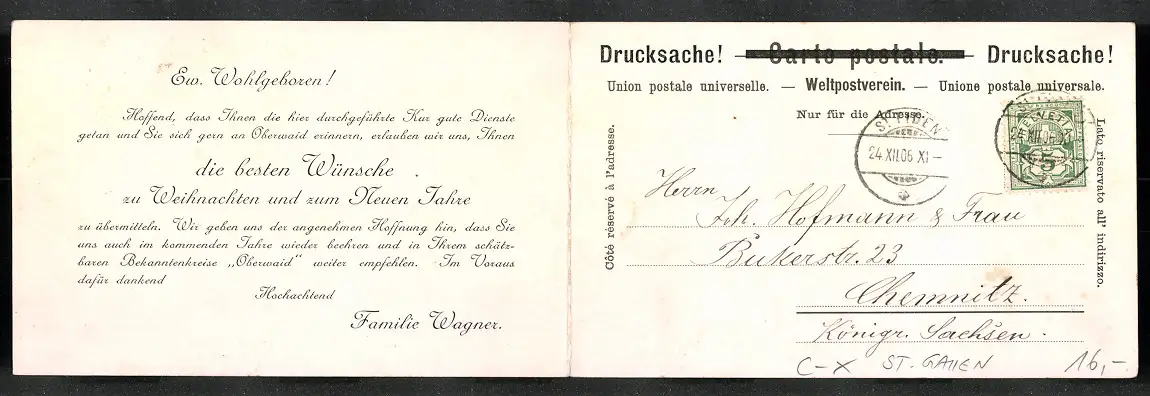 Ew. Wohlgeboren!
Hoffend, dass Ihnen die hier durchgeführte Kur gute Dienste
getan und Sie sich gern an Oberwaid erinnern, erlauben wir uns, Ihnen
die besten Wünsche
zu Weihnachten und zum Neuen Jahre
zu übermitteln. Wir geben uns der angenehmen Hoffnung hin, dass Sie
uns auch im kommenden Jahre wieder beehren und in Ihrem schätz-
baren Bekanntenkreise „Oberwaid" weiter empfehlen. Im Voraus
dafür dankend
Hochachtend
Familie Wagner.
Drucksache! — Carte postale. — Drucksache!
Union postale universelle. — Weltpostverein. — Unione postale universale.
Nur für die Adresse.
Côté réservé à l'adresse.
Lato riservato all' indirizzo.
24.XII.06 XI–
HELVETIA
24.XII.06 XI
5
Herrn
Joh. Hofmann & Frau
Bukerstr. 23
Chemnitz.
Königr. Sachsen.
C-X ST. GALLEN 16,-